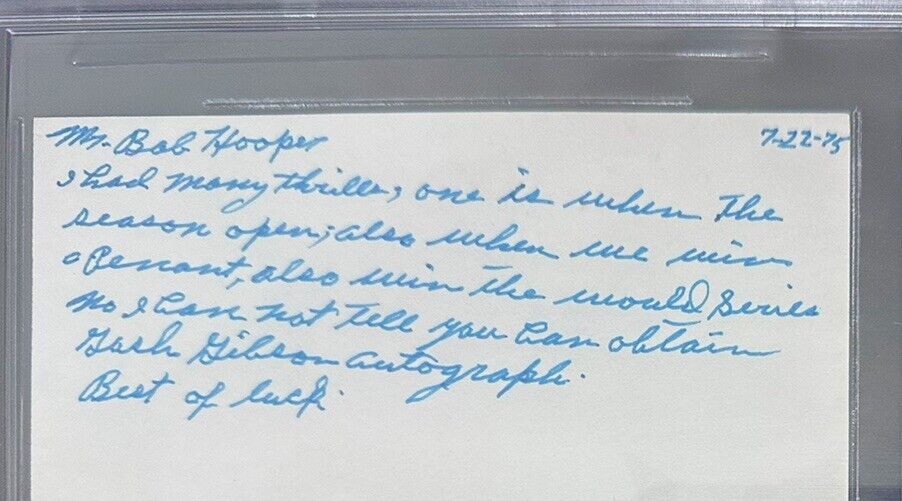 Mr. Bob Hooper 7-22-75
I had many thrills, one is when The
season open; also when we win
a Penant, also win the would Series
No I can not Tell you can obtain
Gash Gibson autograph.
Best of luck.